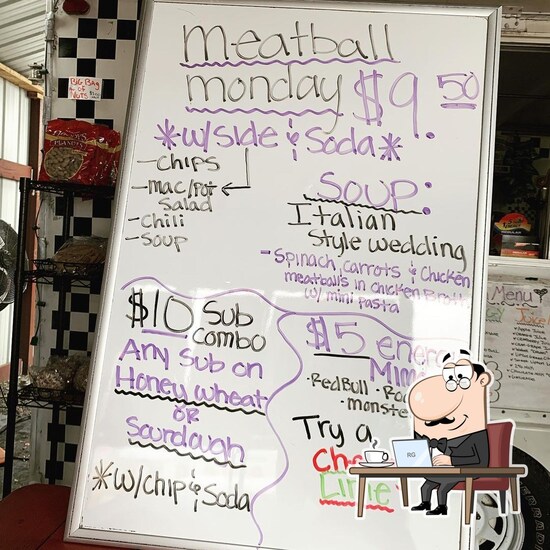 meatball
monday $9.50
*w/side & Soda*
-Chips
-mac/Pot
Salad
-Chili
-Soup
Soup:
Italian
Style wedding
-Spinach, Carrots & Chicken
meatballs in chicken
w/ mini pasta
$10 Sub
Combo
Any Sub on
Honey wheat
or
Sourdough
*w/chip & Soda
$5
•RedBull •
•monste
Try a
Lime
BIG Bag
of
NUTS
PEANUTS
Menu
RG